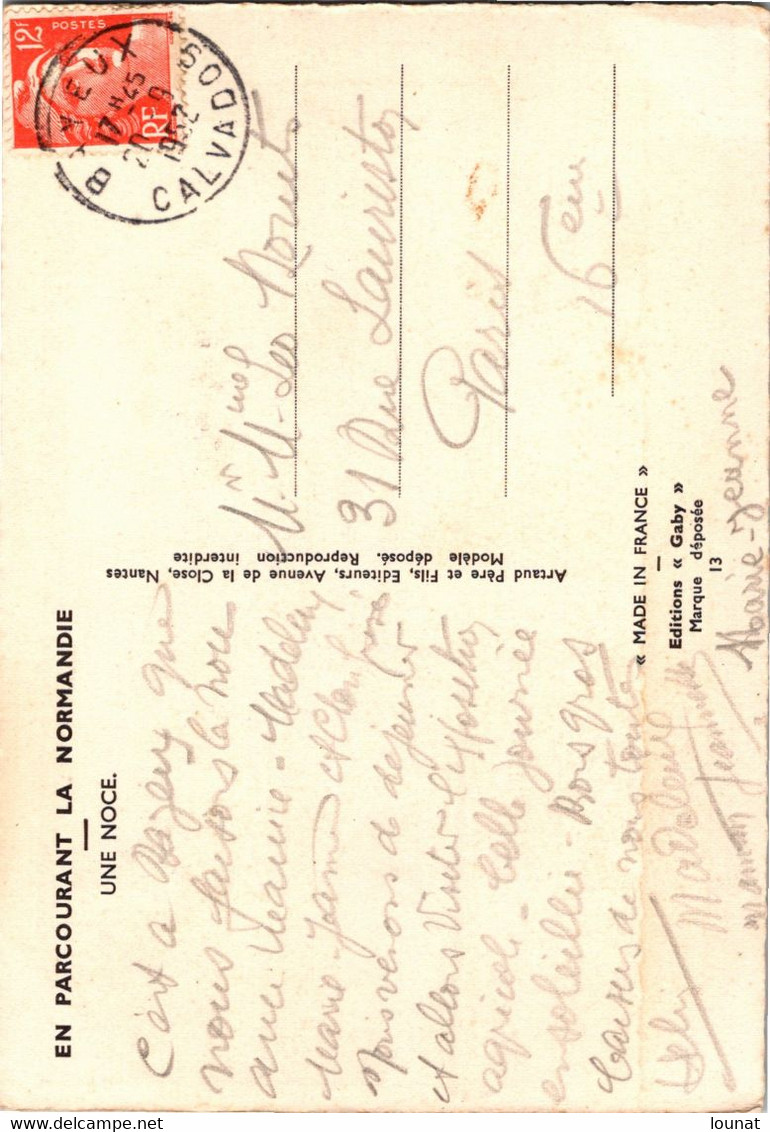 EN PARCOURANT LA NORMANDIE
UNE NOCE.
C'est à Bayeux que
nous faisons la noce
avec Jeanne - Madeleine
Marie-Jeanne et
Nous venons de déjeuner
et allons visiter l'exposition
agricole - belle journée
ensoleillée - Bons gros
baisers de nous toutes
Madeleine
maman Jeannette
Marie-Jeanne
Artaud Père et Fils, Editeurs, Avenue de la Close, Nantes
Modèle déposé. Reproduction interdite
12F
POSTES
RF
BAYEUX
17H45
20-9
1952
CALVADOS
Mr Mme
31 Rue Lauriston
Paris
16eme
« MADE IN FRANCE »
Editions « Gaby »
Marque déposée
13
lounat